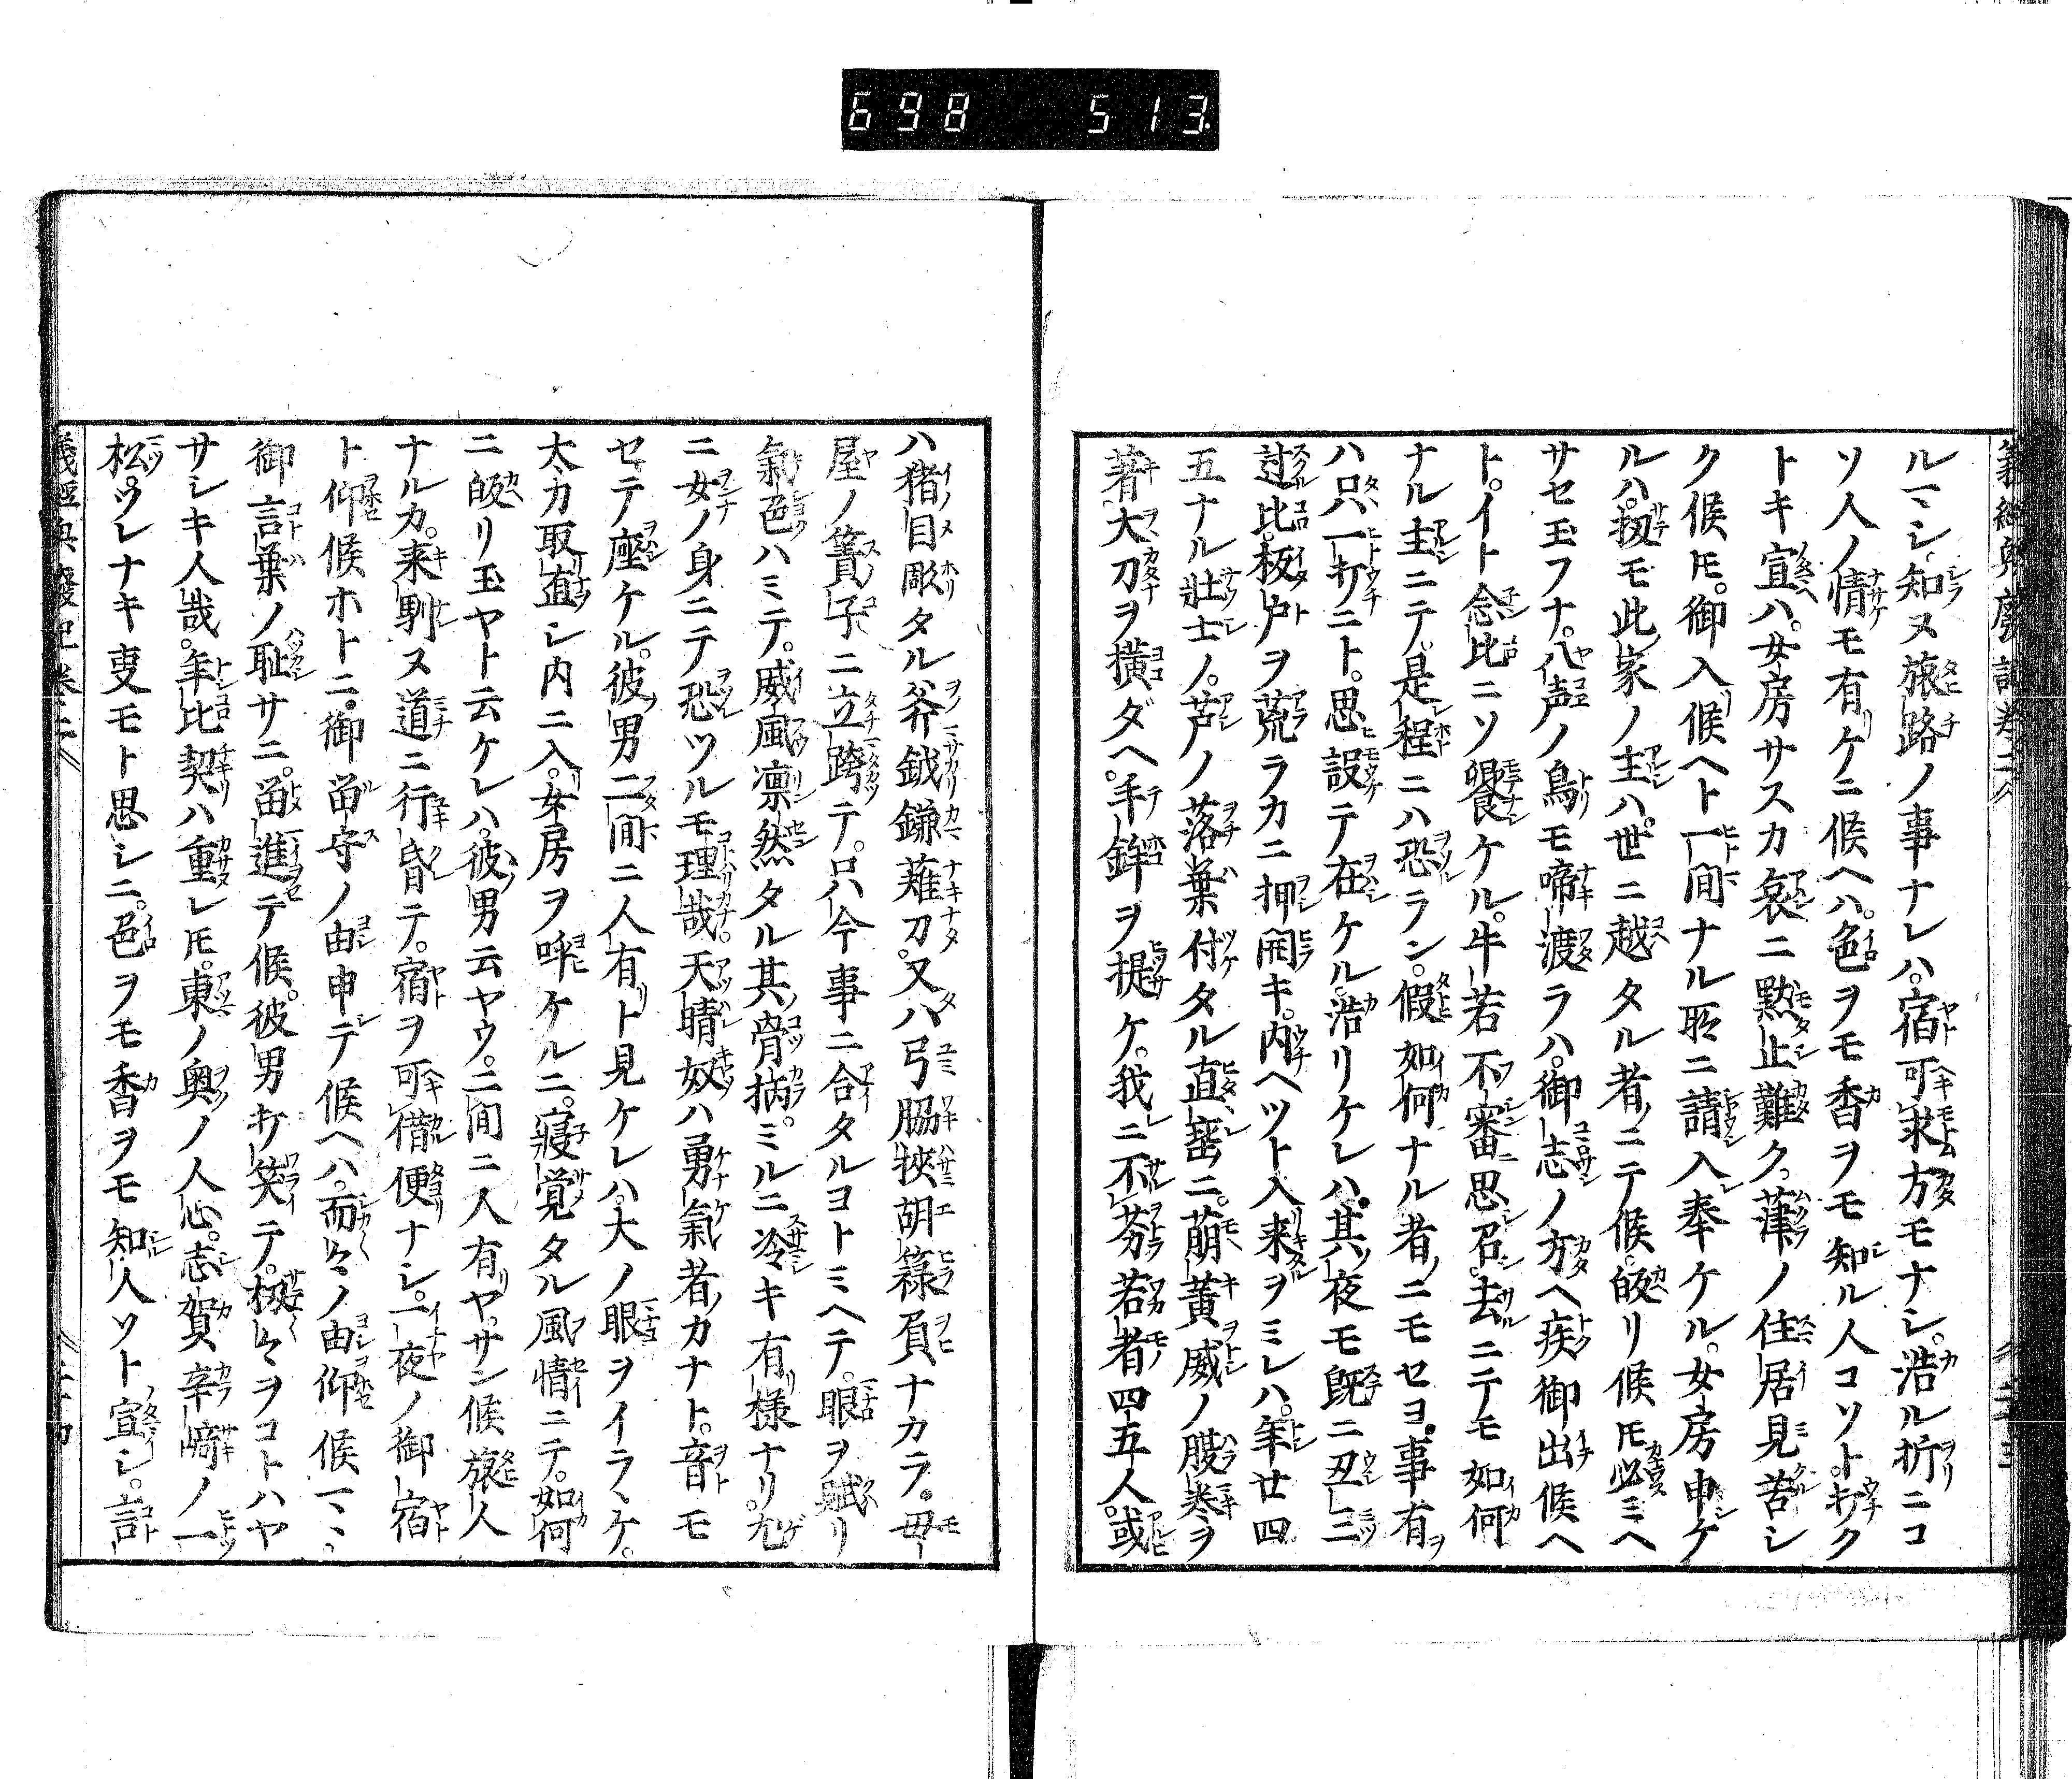 698 513
ル一シ知ヌ旅路ノ事ナレハ。宿可求方モナシ。浩ル折ニコ
ソ人ノ情モ有ケニ候ヘハ。色ヲモ香ヲモ知ル人コソト。打ク
トキ宣ハ。女房サスカ哀ニ黙止難ク。葎ノ住居見苦シ
ク候𪜈。御入候ヘト一間ナル所ニ請入奉ケル。女房申ケ
ルハ。扨モ此家ノ主ハ。世ニ越タル者ニテ候。皈リ候𪜈必ミヘ
サセ玉フナ。八声ノ鳥モ啼渡ラハ。御志ノ方ヘ疾御出候ヘ
ト。イト念比ニソ饗ケル。牛若不審思召。去ニテモ如何
ナル主ニテ。是程ニハ恐ラン。假如何ナル者ニモセヨ。事有
ハ只一打ニト。思設テ在ケル。浩リケレハ。其夜モ既ニ丑三
過比。板戸ヲ荒ラカニ押開キ。内ヘツト入来ヲミレハ。年廿四
五ナル壮士ノ。芦ノ落葉付タル直垂ニ。萠黄威ノ腹巻ヲ
著。大刀ヲ横ダヘ。手鉾ヲ提ケ。我ニ不芬若者四五人。或
ハ猪目彫タル斧鉞鎌薙刀。又ハ弓脇挾胡籙負ナカラ。毋
屋ノ簀子ニ立跨テ。只今事ニ合タルコトミヘテ。眼ヲ賦リ
氣色ハミテ。威風凛然タル其骨柄。ミルニ冷キ有様ナリ。尤
ニ女ノ身ニテ恐ツルモ理哉。天晴奴ハ勇氣者カナト。音モ
セテ座ケル。彼男二間ニ人有ト見ケレハ。大ノ眼ヲイラヽケ。
大刀取直シ内ニ入。女房ヲ呼ケルニ。寢覚タル風情ニテ。如何
ニ皈リ玉ヤト云ケレハ。彼男云ヤウ。二間ニ人有ヤ。サン候旅人
ナルカ。来馴ヌ道ニ行昏テ。宿ヲ可借便ナシ。一夜ノ御宿
ト仰候ホトニ。御畄守ノ由申テ候ヘハ。而々ノ由仰候一ミ。
御言葉ノ耻サニ。畄進テ候。彼男打笑テ。極々ヲコトハヤ
サシキ人哉。年比契ハ重レ𪜈。東ノ奥ノ人心。志賀辛﨑ノ一
松。ツレナキ叓モト思シニ。色ヲモ香ヲモ知人ソト宣シ。言